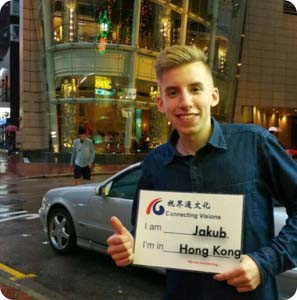 視界通文化
Connecting Visions
I am Jakub
I'm in Hong Kong